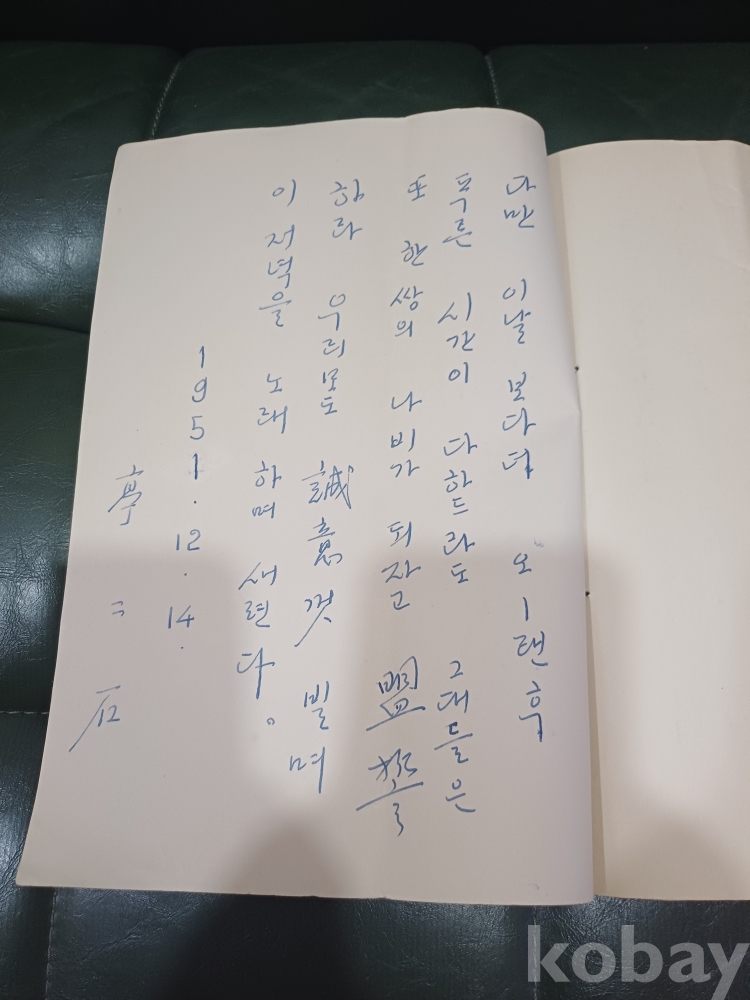 다만 이날 보다더 오ㅣ랜 후
푸른 시간이 다 하드라도 그대들은
또 한 쌍의 나비가 되자고 盟誓
하라 우리 모도 誠意껏 빌며
이 저녁을 노래 하며 새련다。
1951.12.14.
亭 = 石
kobay